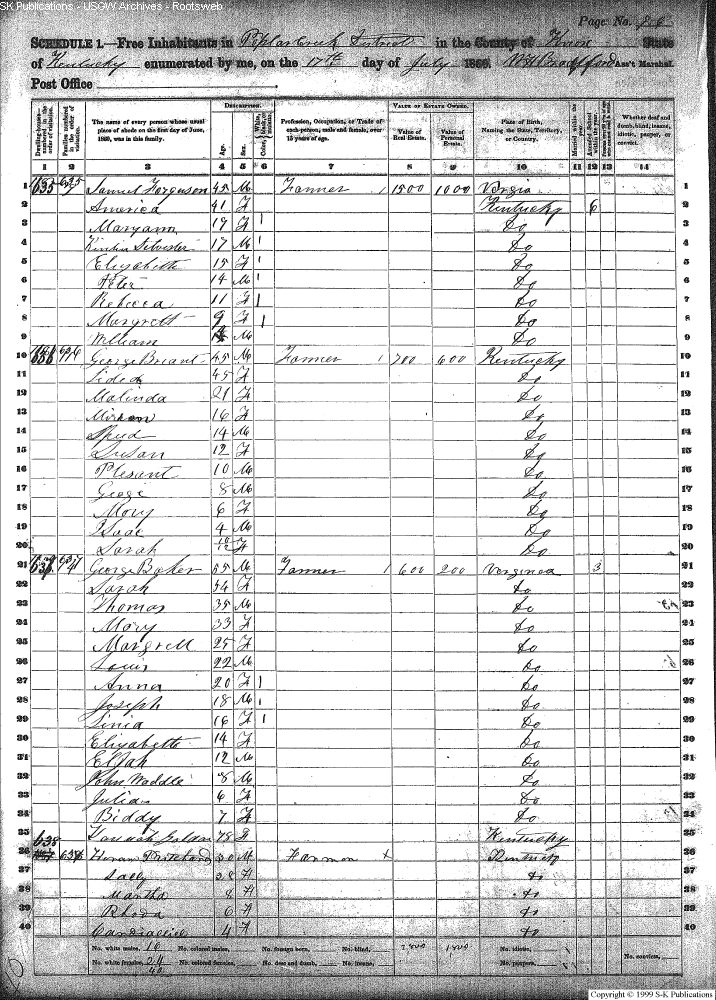 SK Publications - USGW Archives - Rootsweb
Page No. 86
SCHEDULE 1.—Free Inhabitants in Poplar Creek District in the County of Knox State
of Kentucky enumerated by me, on the 17th day of July 1860. Ass't Marshal.
Post Office
Dwelling-houses—numbered in the order of visitation.
Families numbered in the order of visitation.
The name of every person whose usual place of abode on the first day of June, 1860, was in this family.
DESCRIPTION.
Age.
Sex.
Profession, Occupation, or Trade of each person, male and female, over 15 years of age.
VALUE OF ESTATE OWNED.
Value of Real Estate.
Value of Personal Estate.
Place of Birth, Naming the State, Territory, or Country.
Whether deaf and dumb, blind, insane, idiotic, pauper, or convict.
1 2 3 4 5 6 7 8 9 10 11 12 13 14
1 Samuel Ferguson 45 M Farmer 1 1500 1000 Vergia 1
2 America 41 F Kentucky 6 2
3 Maryann 19 F Do 3
4 Silvester 17 M Do 4
5 Elizabeth 15 F Do 5
6 14 M Do 6
7 Rebecca 11 F Do 7
8 Margrett 9 F Do 8
9 William M Do 9
10 George Briant 45 M Farmer 1 700 600 Kentucky 10
11 45 F Do 11
12 Malinda 21 F Do 12
13 16 F Do 13
14 Speed 14 M Do 14
15 Susan 12 F Do 15
16 Plesant 10 M Do 16
17 Geoge 8 M Do 17
18 Mary 6 F Do 18
19 Isaac 4 M Do 19
20 Sarah 10/12 F Do 20
21 George Baker 55 M Farmer 1 600 200 Verginea 3 21
22 Sarah 54 F Do 22
23 Thomas 35 M Do 23
24 Mary 33 F Do 24
25 Margrett 25 F Do 25
26 Louis 22 M Do 26
27 Anna 20 F Do 27
28 Joseph 18 M Do 28
29 Linia 16 F Do 29
30 Elizabeth 14 F Do 30
31 Eljah 12 M Do 31
32 John Waddle 8 M Do 32
33 Julia 6 F Do 33
34 Biddy 7 F Do 34
35 78 F Kentucky 35
638
36 Pritchard 30 M Farmer x Kentucky 36
37 Sally 28 F do 37
38 Martha 8 F do 38
39 Rhoda 6 F do 39
40 4 F do 40
No. white males, 16 No. colored males, No. foreign born, No. blind, 2800 1800 No. idiotic, No. convicts,
No. white females, 24 No. colored females, No. deaf and dumb, No. insane, No. paupers,
40
Copyright © 1999 S-K Publications